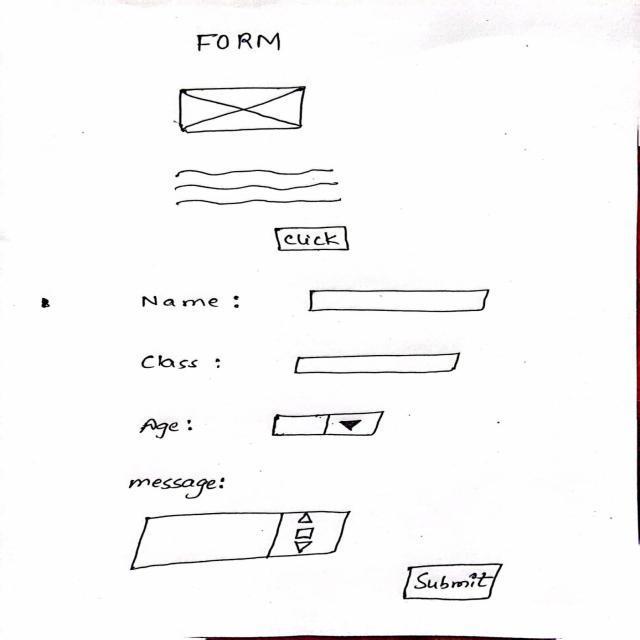 FORM
click
Name :
Class :
Age :
message:
Submit